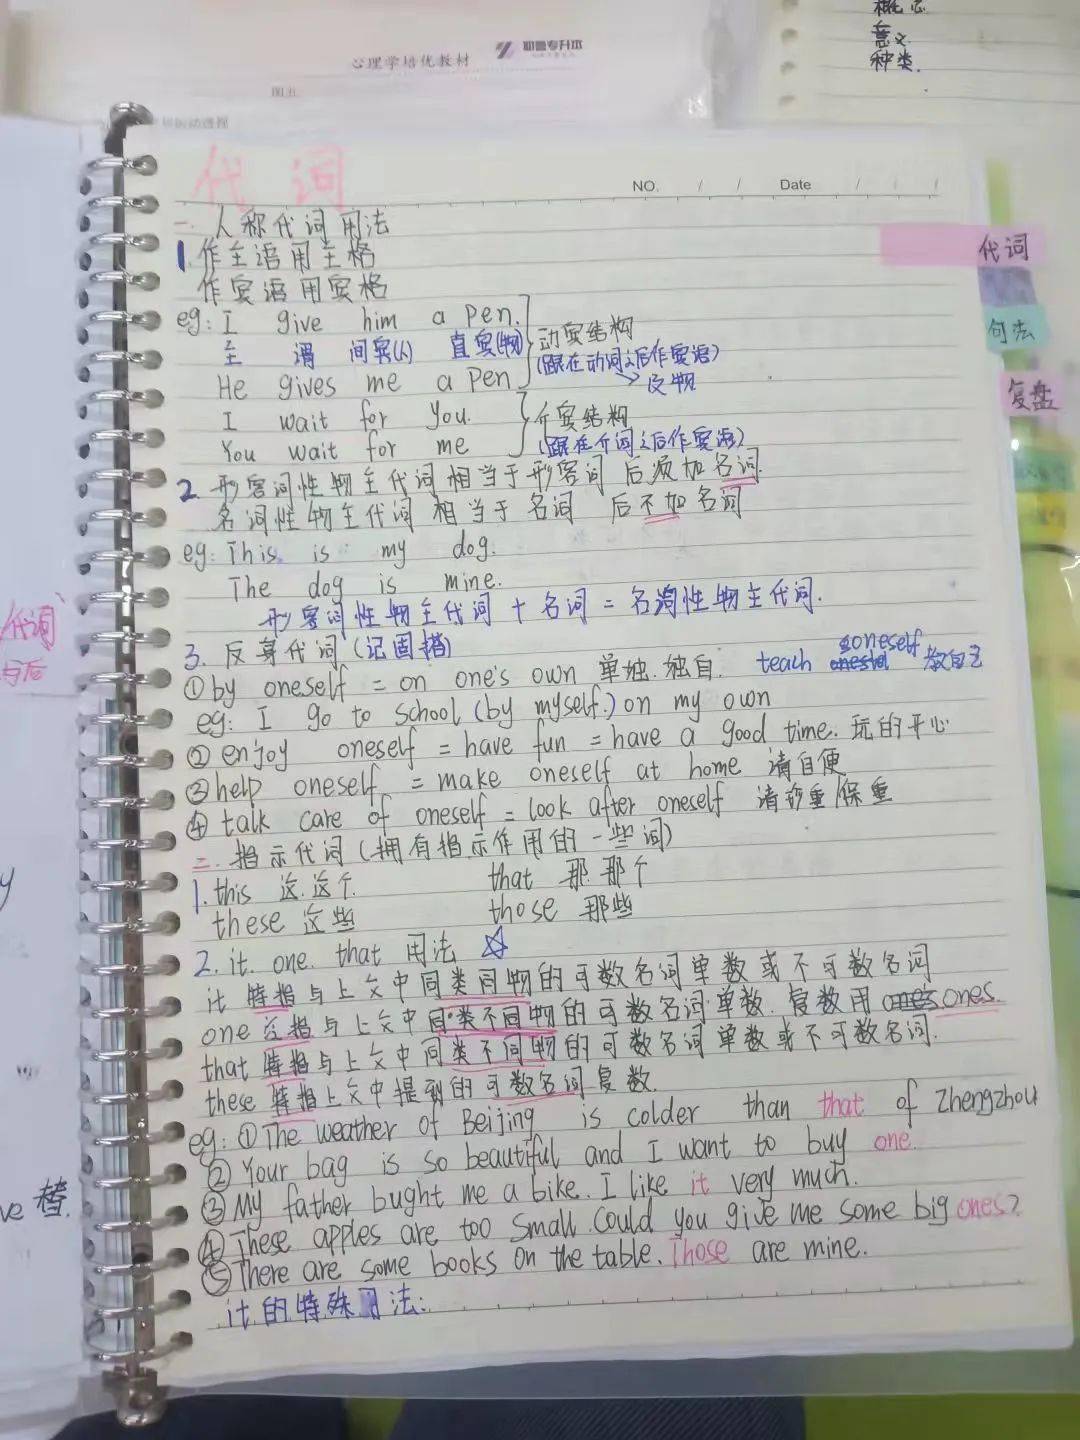 心理学培优教材
概念
意义
种类.
代词
NO. / / Date / / /
一. 人称代词用法
1.作主语用主格
作宾语用宾格
eg: I give him a pen.
主 谓 间宾(人) 直宾(物)
He gives me a pen
动宾结构
(跟在动词之后作宾语)
I wait for you.
You wait for me
介宾结构
(跟在介词之后作宾语)
2. 形容词性物主代词相当于形容词 后须加名词
名词性物主代词 相当于名词 后不加名词
eg: This is my dog.
The dog is mine.
形容词性物主代词 + 名词 = 名词性物主代词.
3. 反身代词 (记固搭)
①by oneself = on one's own 单独.独自. teach oneself 教自己
eg: I go to school (by myself.) on my own
② enjoy oneself = have fun = have a good time. 玩的开心
③help oneself = make oneself at home 请自便
④ talk care of oneself = look after oneself 请珍重/保重
二. 指示代词 (拥有指示作用的一些词)
1. this 这.这个. that 那 那个
these 这些 those 那些
2. it. one. that 用法 ☆
it 特指与上文中同类同物的可数名词单数或不可数名词
one 泛指与上文中同类不同物的可数名词单数. 复数用 one's ones.
that 特指与上文中同类不同物的可数名词单数或不可数名词.
these 特指上文中提到的可数名词复数.
eg: ①The weather of Beijing is colder than that of Zhengzhou
② Your bag is so beautiful and I want to buy one.
③ My father bught me a bike. I like it very much.
④ These apples are too small. Could you give me some big ones?
⑤There are some books on the table. Those are mine.
it的特殊用法:
代词
句法
复盘
代词
与后
ve 替.